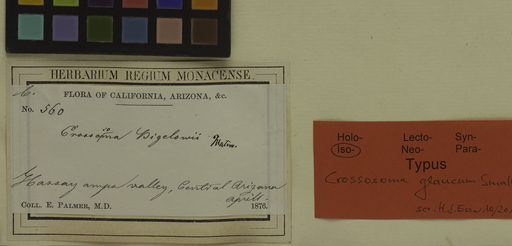 HERBARIUM REGIUM MONACENSE.
FLORA OF CALIFORNIA, ARIZONA, &c.
No. 560
Crossosoma Bigelowii Wats.
Hassayampa valley, Central Arizona
april
COLL. E. PALMER, M.D. 1876.
Holo- Lecto- Syn-
Iso- Neo- Para-
Typus
Crossosoma glaucum Small